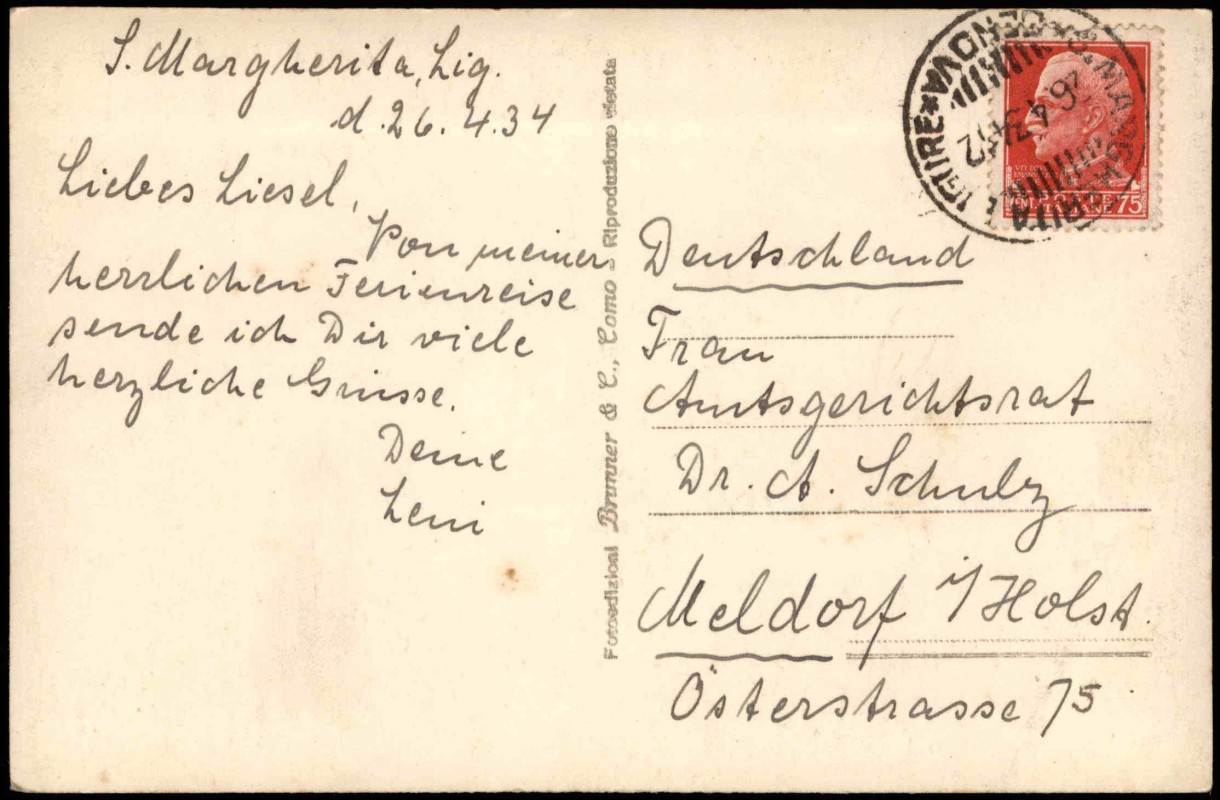 S. Margherita, Lig.
d. 26. 4. 34
Liebes Liesel,
Von meiner
herrlichen Ferienreise
sende ich Dir viele
herzliche Grüsse.
Deine
Leni
Fotoedizioni Brunner & C., Como - Riproduzione vietata
S. MARGHERITA LIGURE * GENOVA
26.4.34.12
POSTE
ITALIANE
75
Deutschland
Frau
Amtsgerichtsrat
Dr. A. Schulz
Meldorf i/Holst.
Österstrasse 75